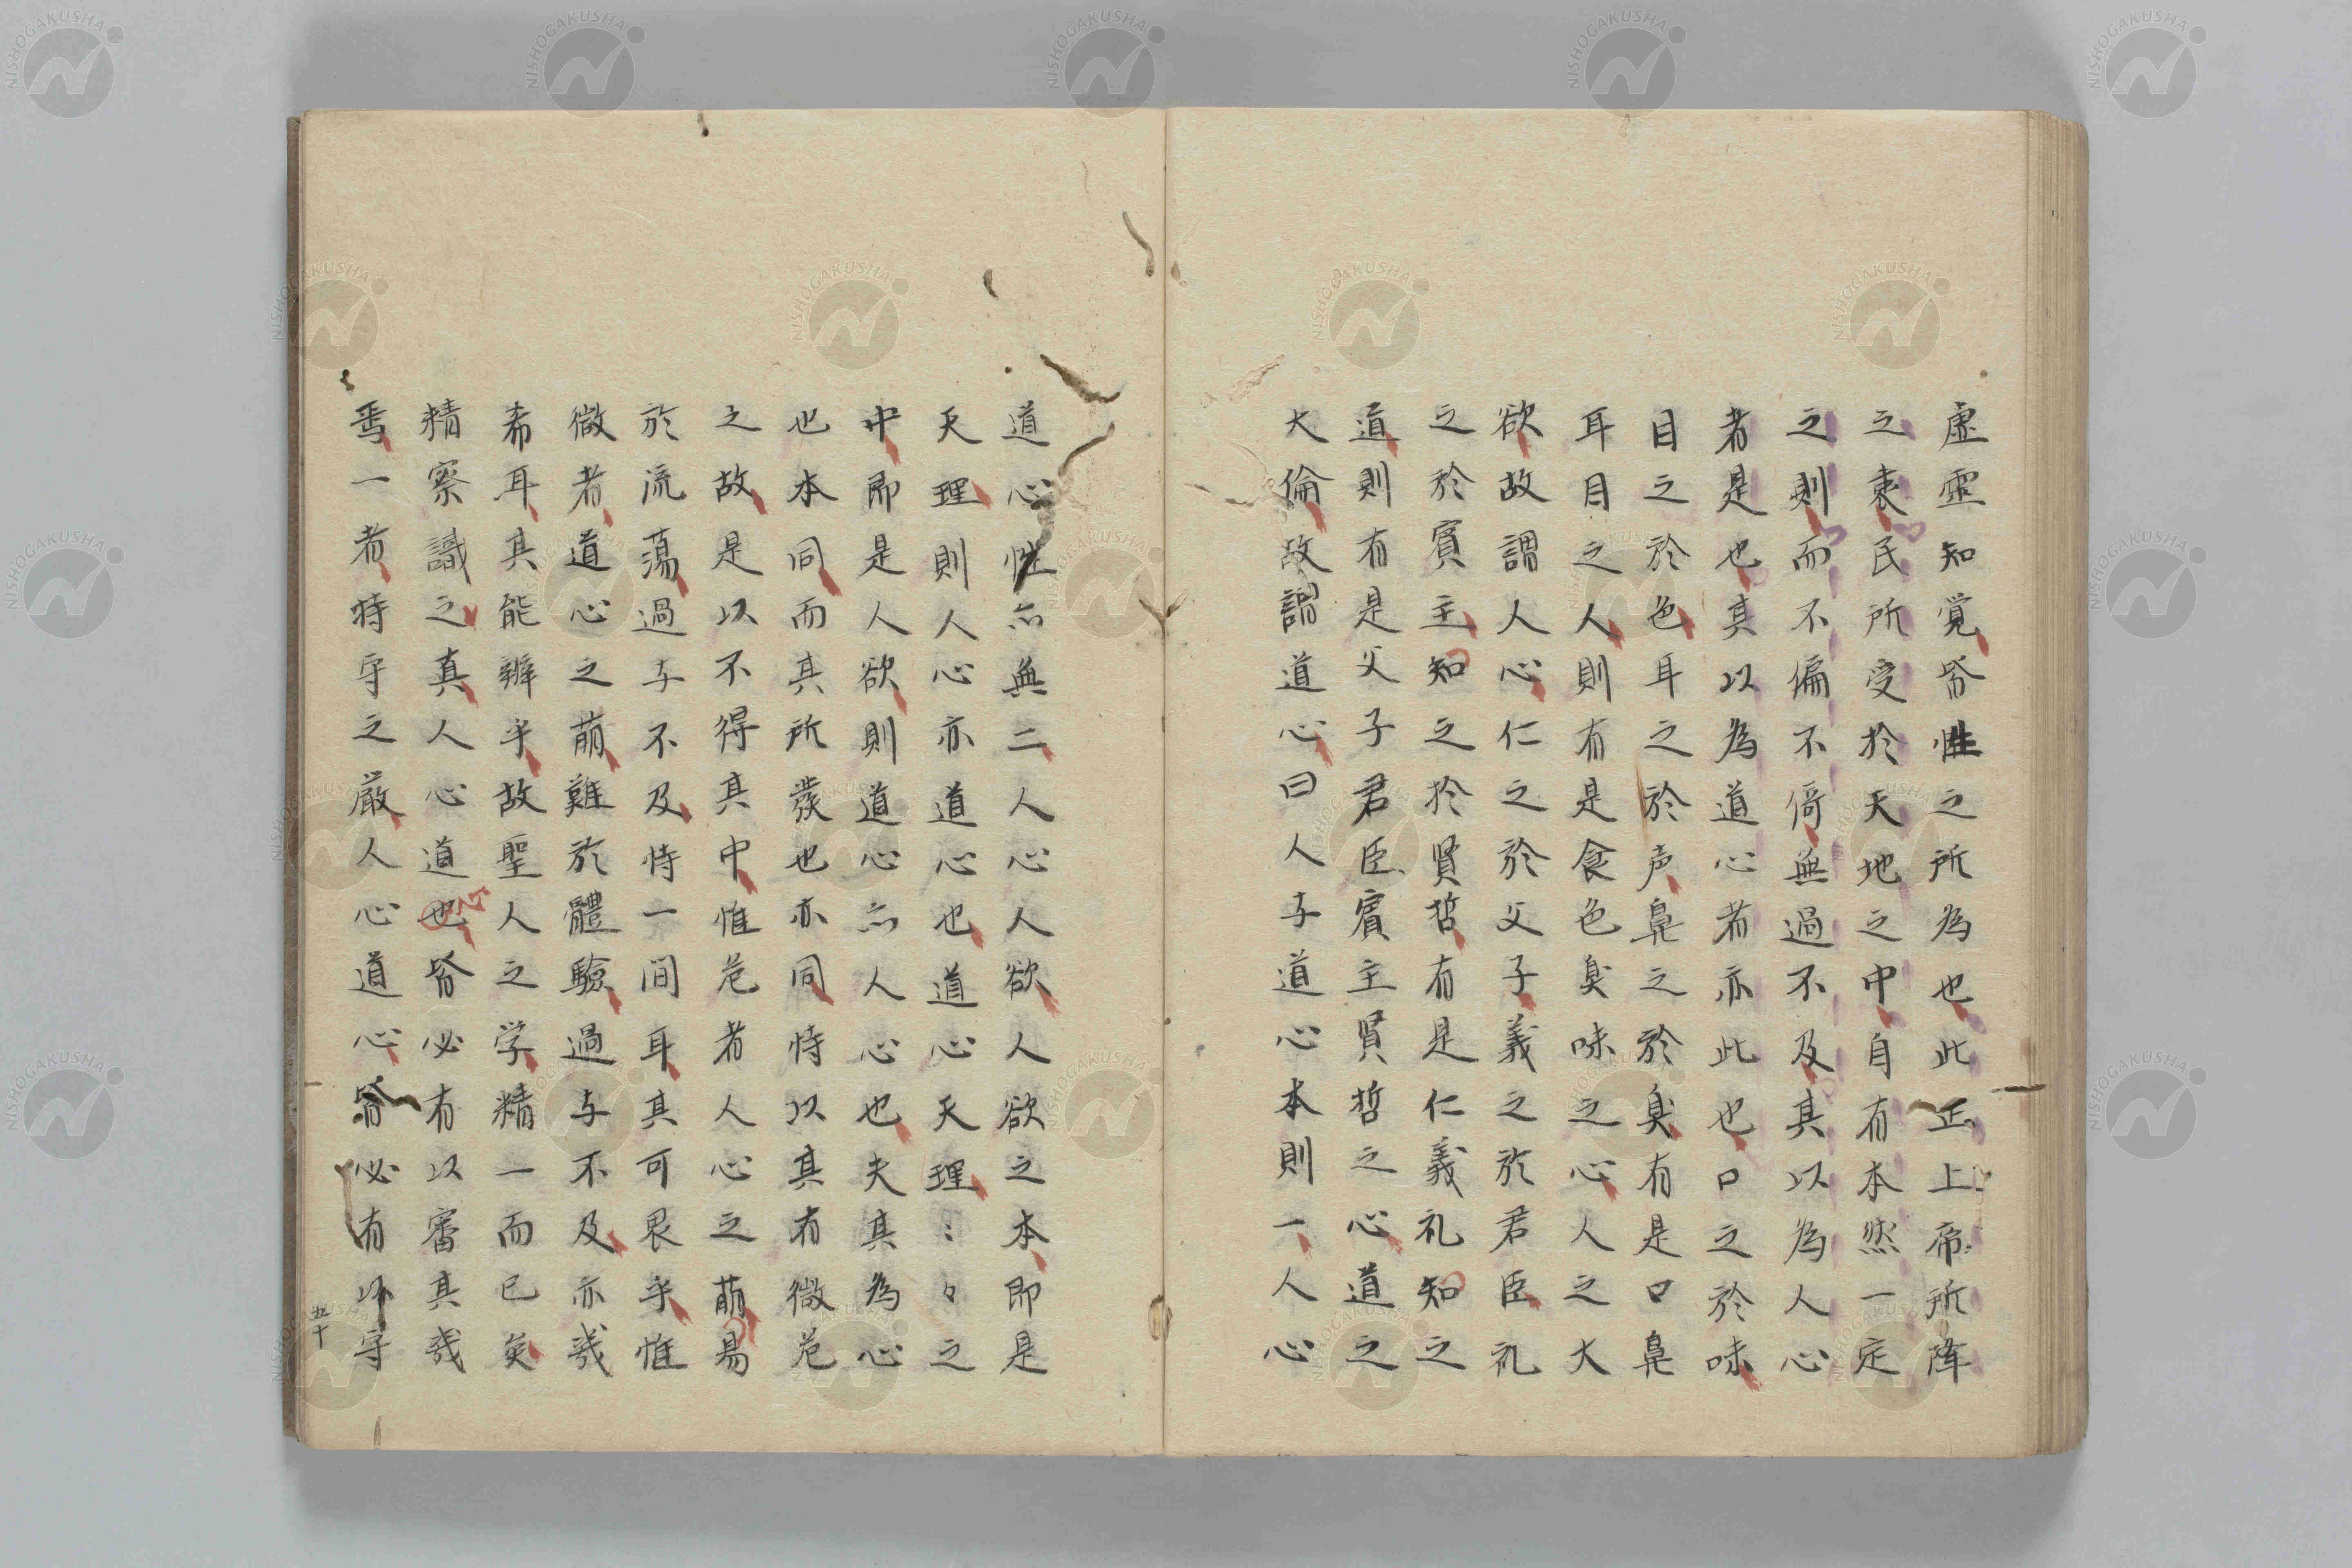 虚霊知覚皆性之所為也此正上帝所降
之衷民所受於天地之中自有本然一定
之則而不偏不倚無過不及其以為人心
者是也其以為道心者亦此也口之於味
目之於色耳之於声鼻之於臭有是口鼻
耳目之人則有是食色臭味之心人之大
欲故謂人心仁之於父子義之於君臣礼
之於賓主知之於賢哲有是仁義礼知之
道則有是父子君臣賓主賢哲之心道之
大倫故謂道心曰人与道心本則一人心
道心性亦無二人心人欲人欲之本即是
天理則人心亦道心也道心天理〻々之
中即是人欲則道心亦人心也夫其為心
也本同而其所発也亦同恃以其有微危
之故是以不得其中惟危者人心之萌易
於流蕩過与不及恃一間耳其可畏乎惟
微者道心之萌難於體驗過与不及亦幾
希耳其能辨乎故聖人之学精一而已矣
精察識之真人心道也皆必有以審其幾
焉一者持守之厳人心道心皆必有以守
五十
NISHOGAKUSHA